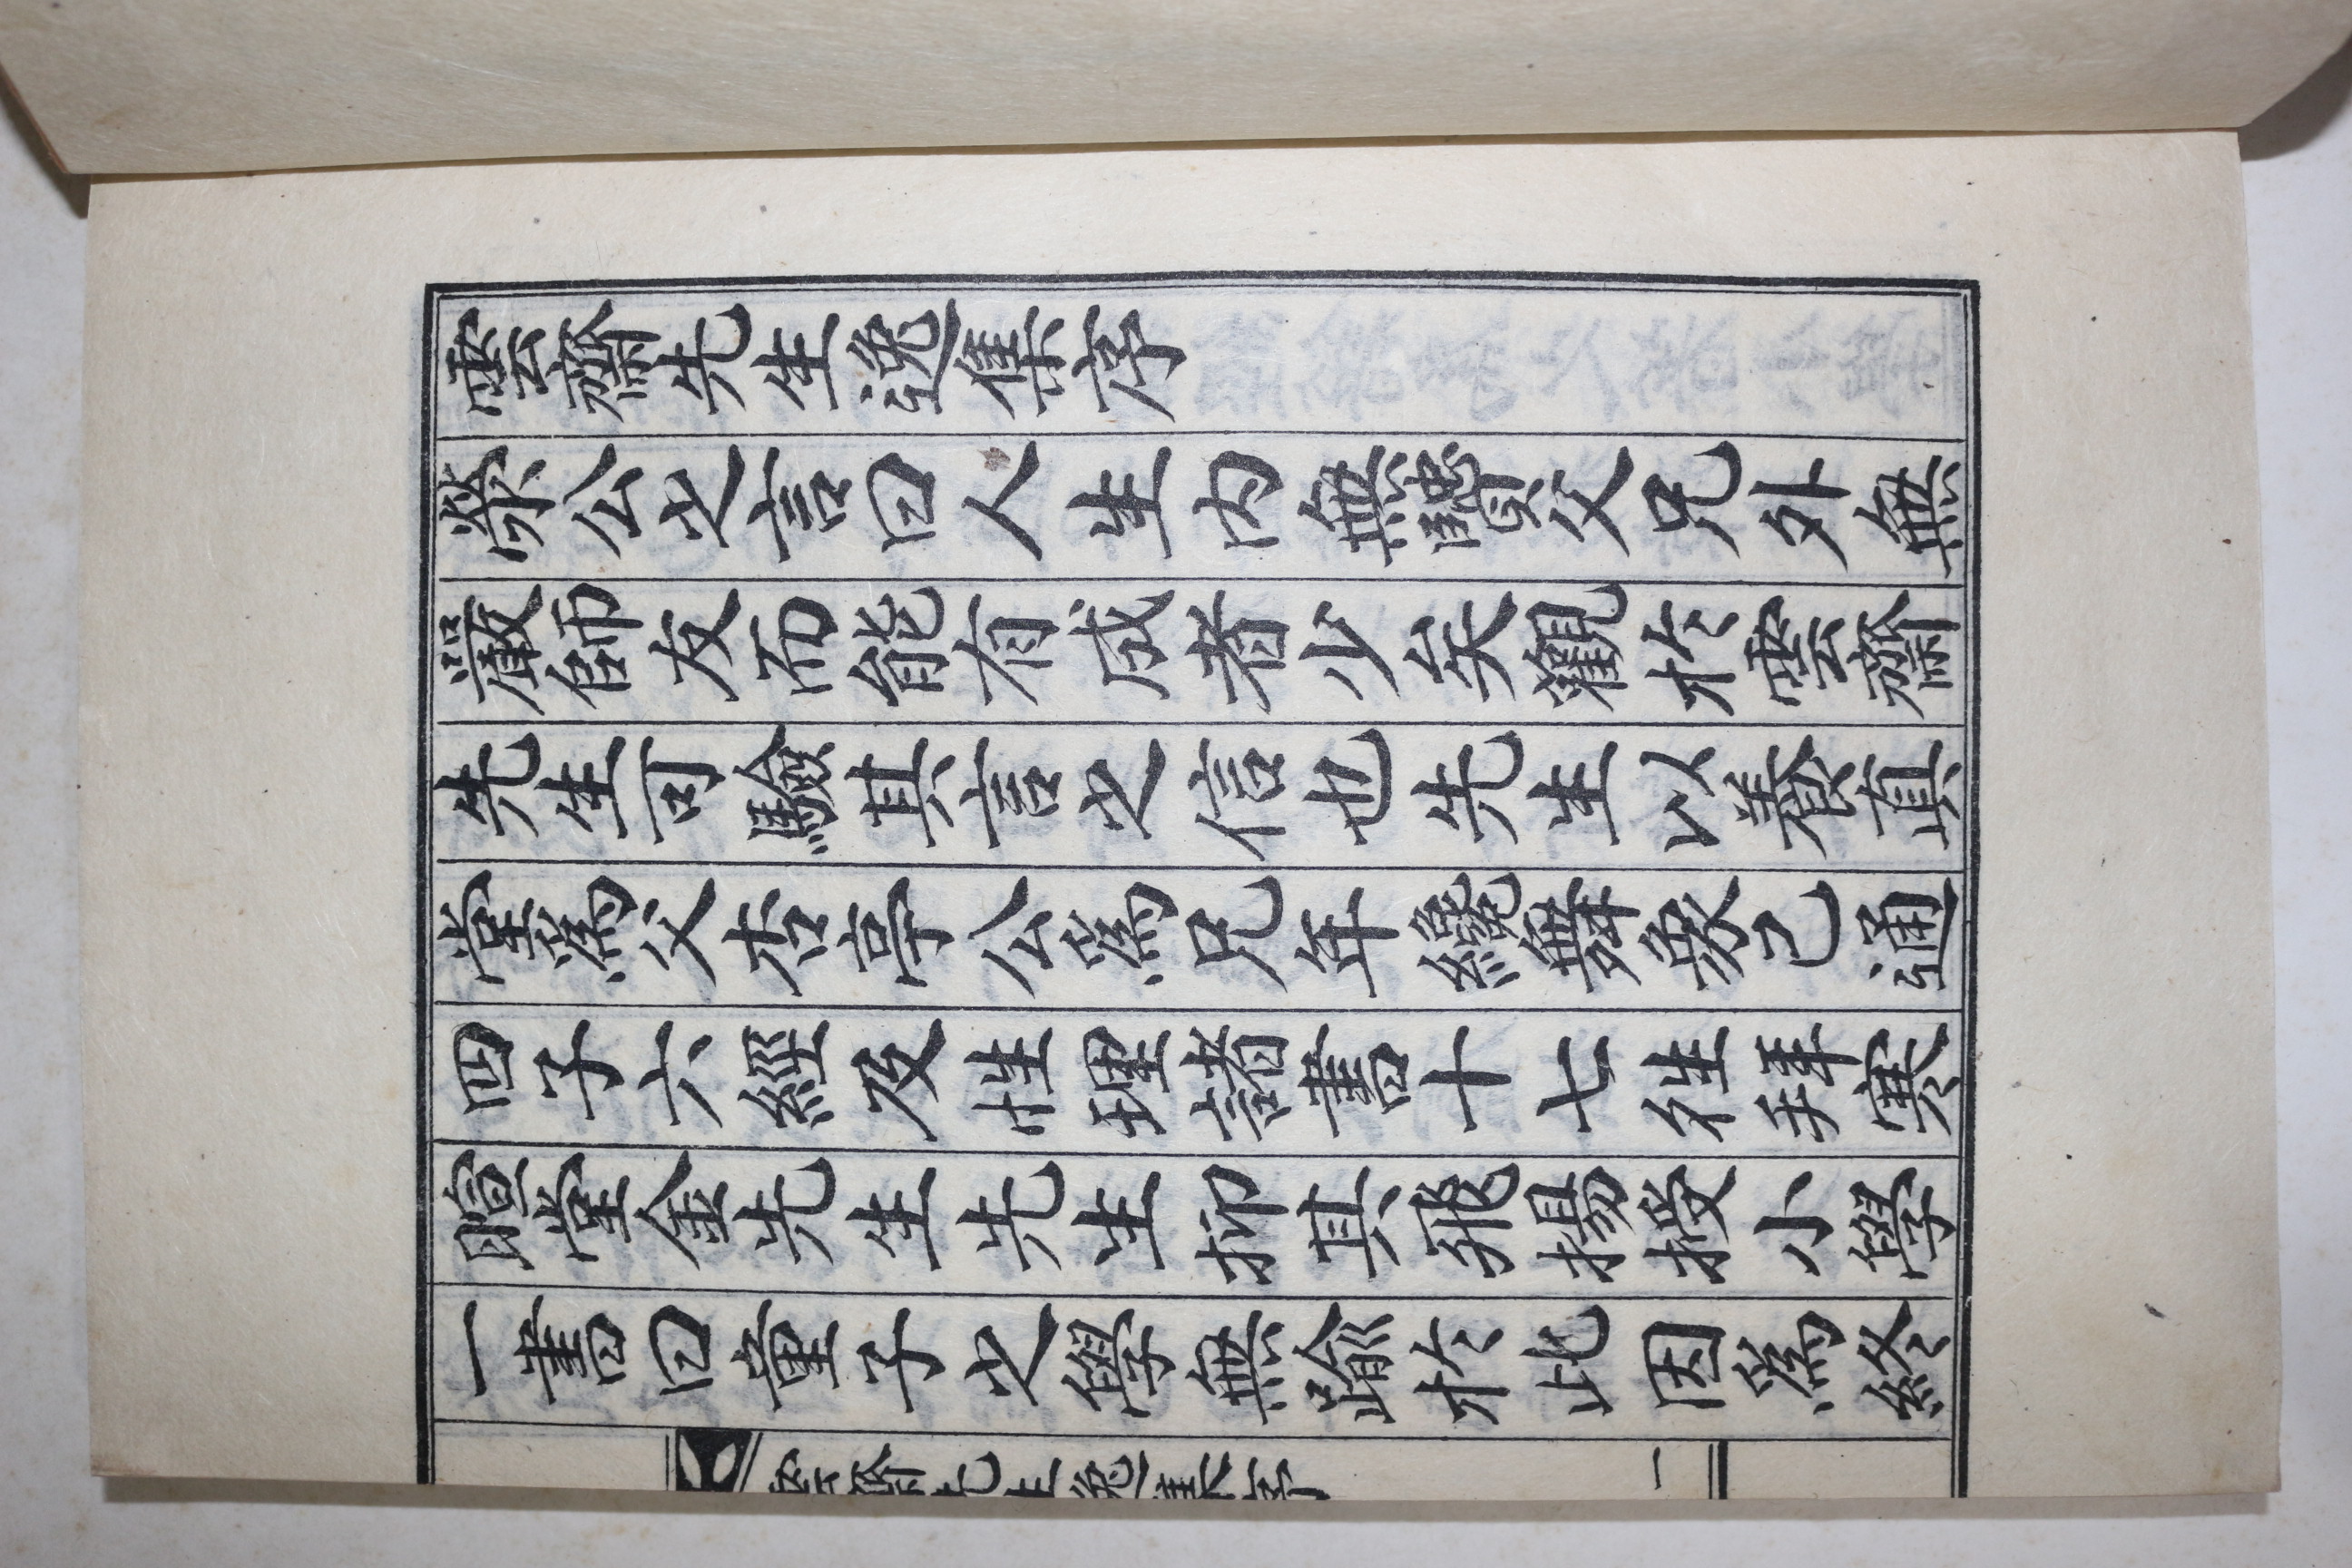 雲齋先生逸集序
滎公之言曰人生內無賢父兄外無
嚴師友而能有成者少矣觀於雲齋
先生可驗其言之信也先生以養眞
堂爲父杏亭公爲兄年纔舞象已通
四子六經及性理諸書十七往拜寒
暄堂金先生先生抑其飛揚授小學
一書曰童子之學無踰於此因爲終
雲齋先生逸集序 一